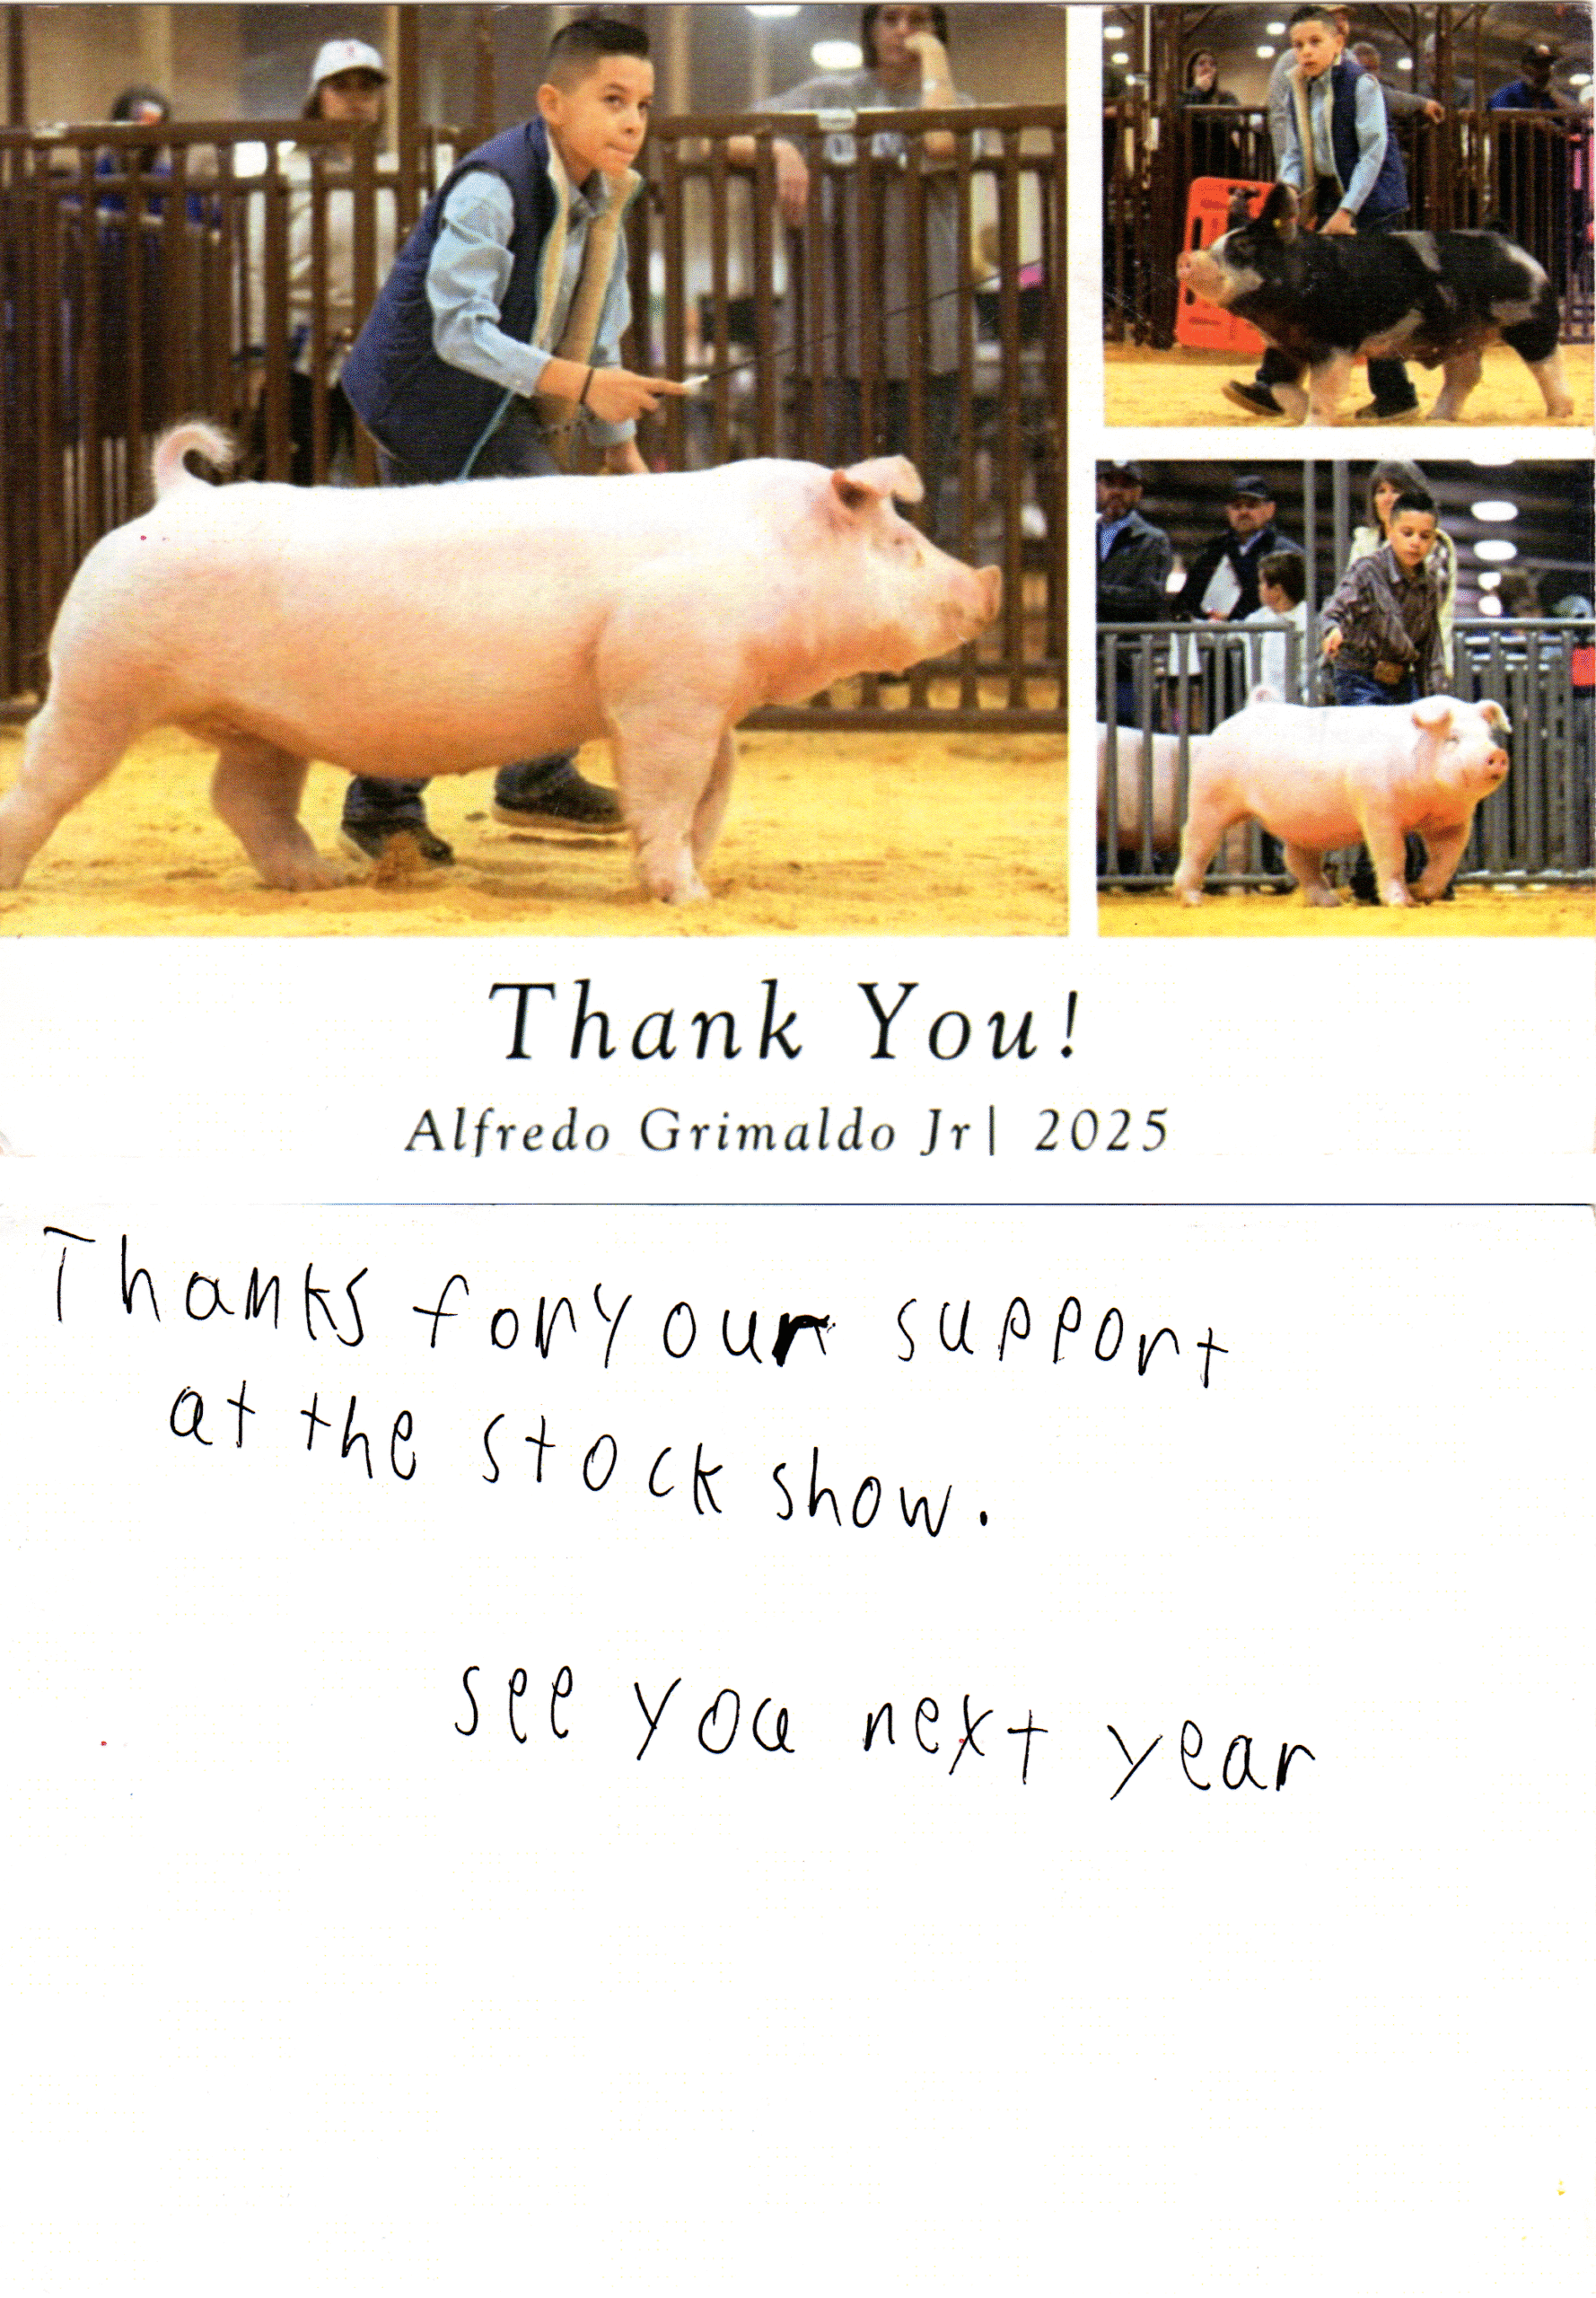 Thank You!
Alfredo Grimaldo Jr| 2025
Thanks for your support
at the stock show.
see you next year